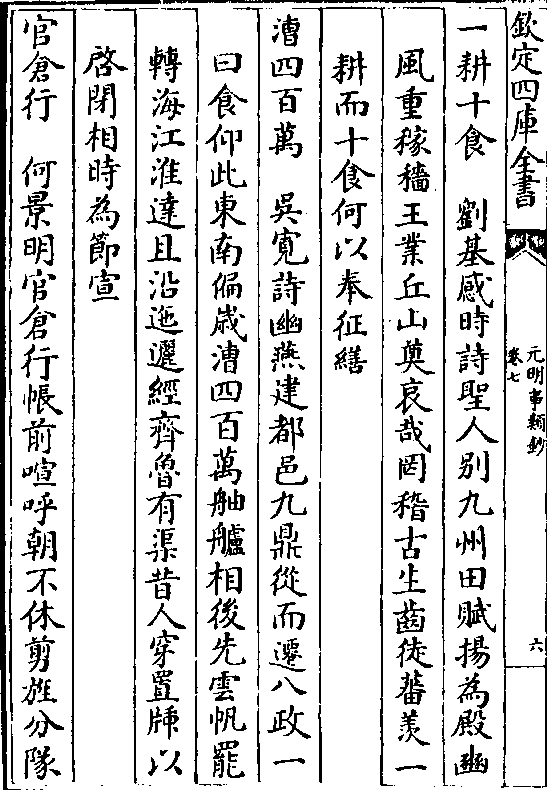 欽定四庫全書
元明事類鈔
卷七
六
一耕十食　劉基感時詩聖人別九州田賦揚為殿豳
風重稼穡王業丘山奠哀哉罔稽古生齒徒蕃羡一
耕而十食何以奉征繕
漕四百萬　吳寛詩幽燕建都邑九鼎從而遷八政一
曰食仰此東南偏歲漕四百萬舳艫相後先雲帆罷
轉海江淮達且沿迤邐經齊魯有渠昔人穿置牐以
啓閉相時為節宣
官倉行　何景明官倉行帳前喧呼朝不休剪旌分隊